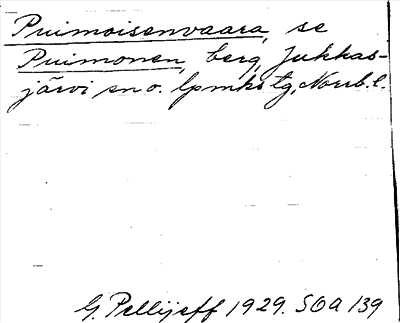 Puimoisenvaara, se
Puimonen, berg, Jukkas-
järvi sn o. lpmkstg, Norrb. l.
G. Pellijeff 1929. SOA 139